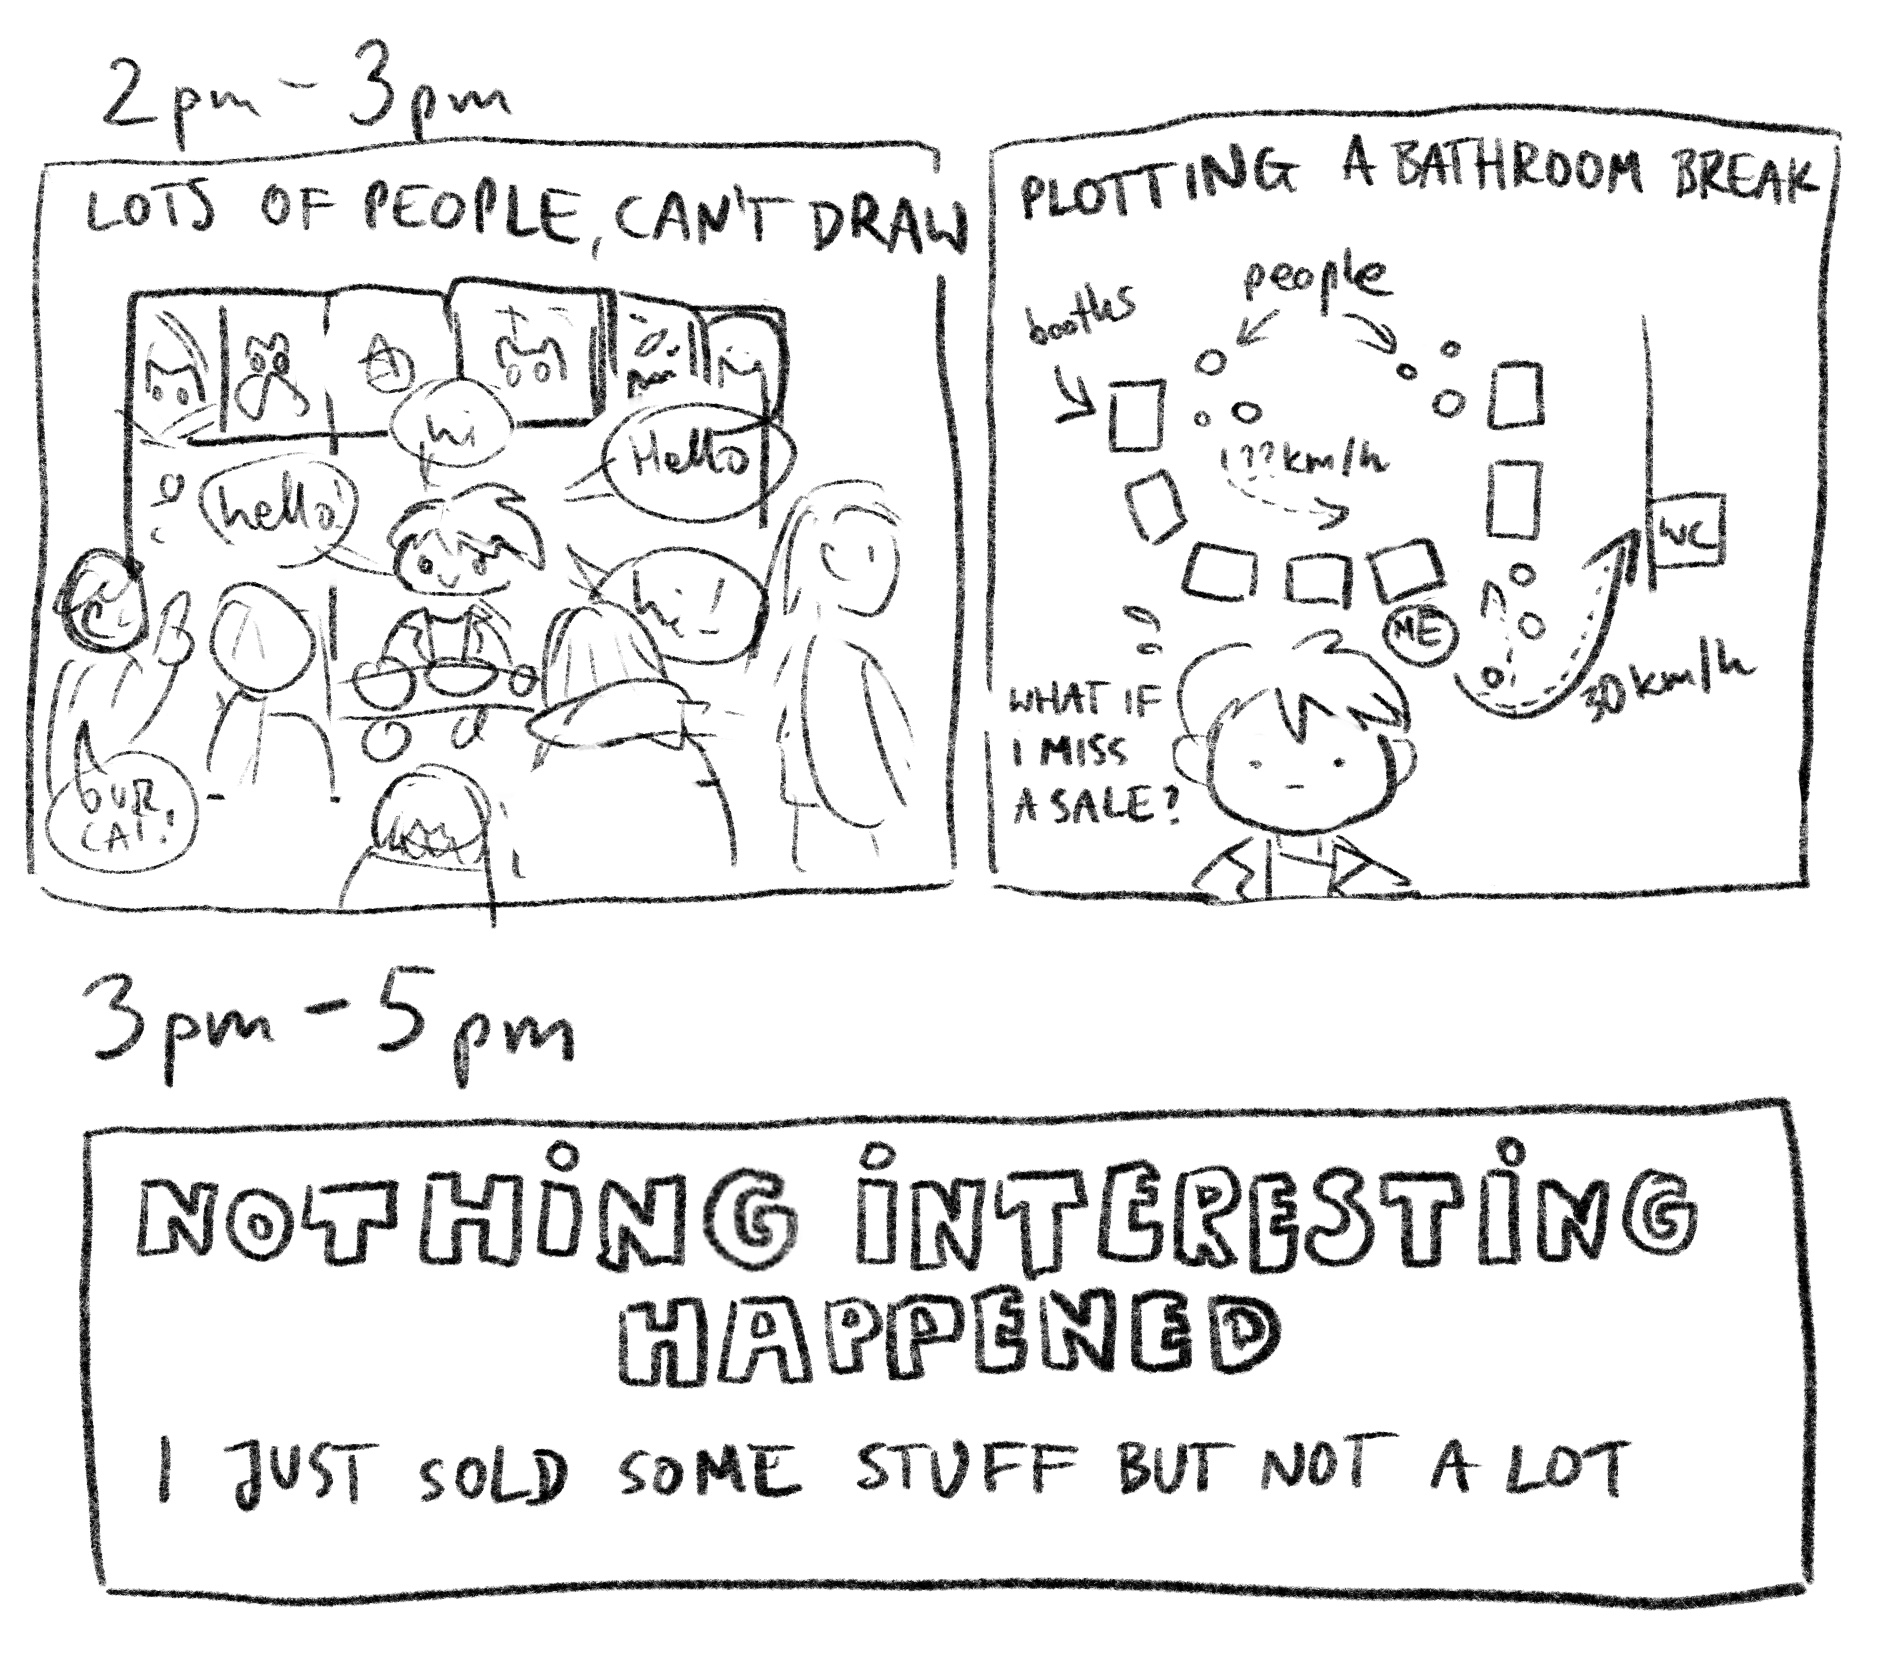 2pm - 3pm
LOTS OF PEOPLE, CAN'T DRAW
hi
Hello
hello!
hi!
CAT!
PLOTTING A BATHROOM BREAK
people
booths
??km/h
WC
ME
30km/h
WHAT IF
I MISS
A SALE?
3pm - 5pm
NOTHING INTERESTING
HAPPENED
I JUST SOLD SOME STUFF BUT NOT A LOT